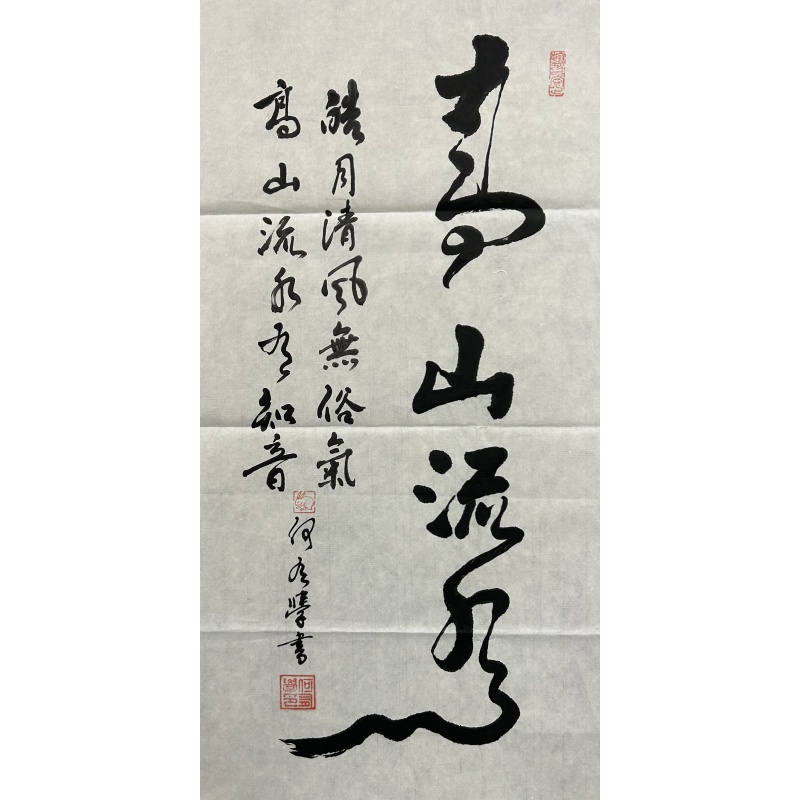 高山流水
皓月清風無俗氣
高山流水有知音
何有書